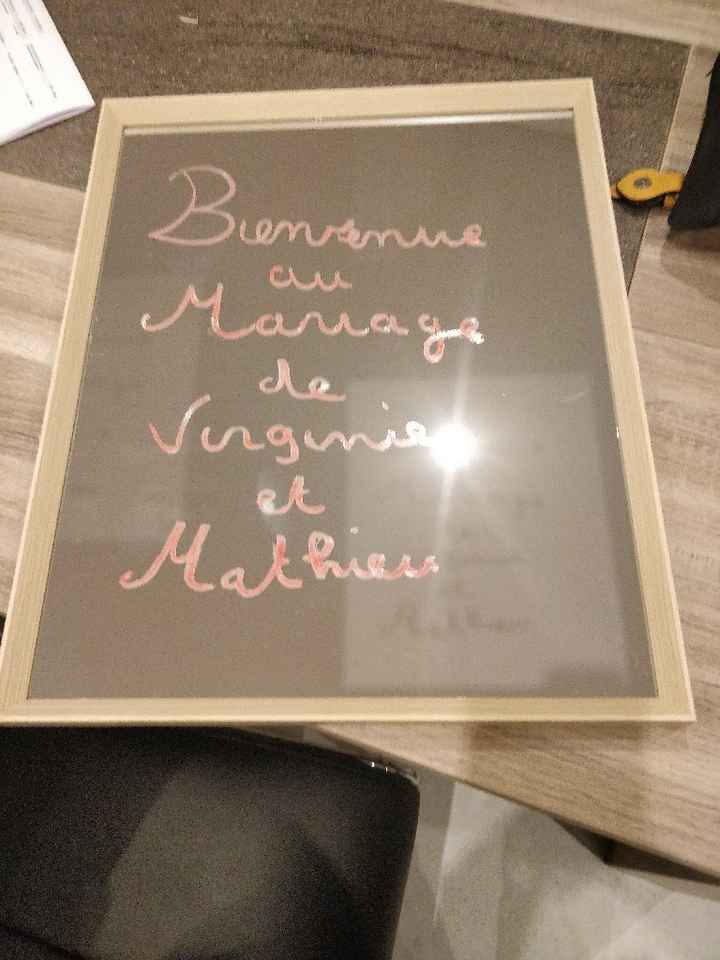 Bienvenue
au
Mariage
de
Virginie
et
Mathieu